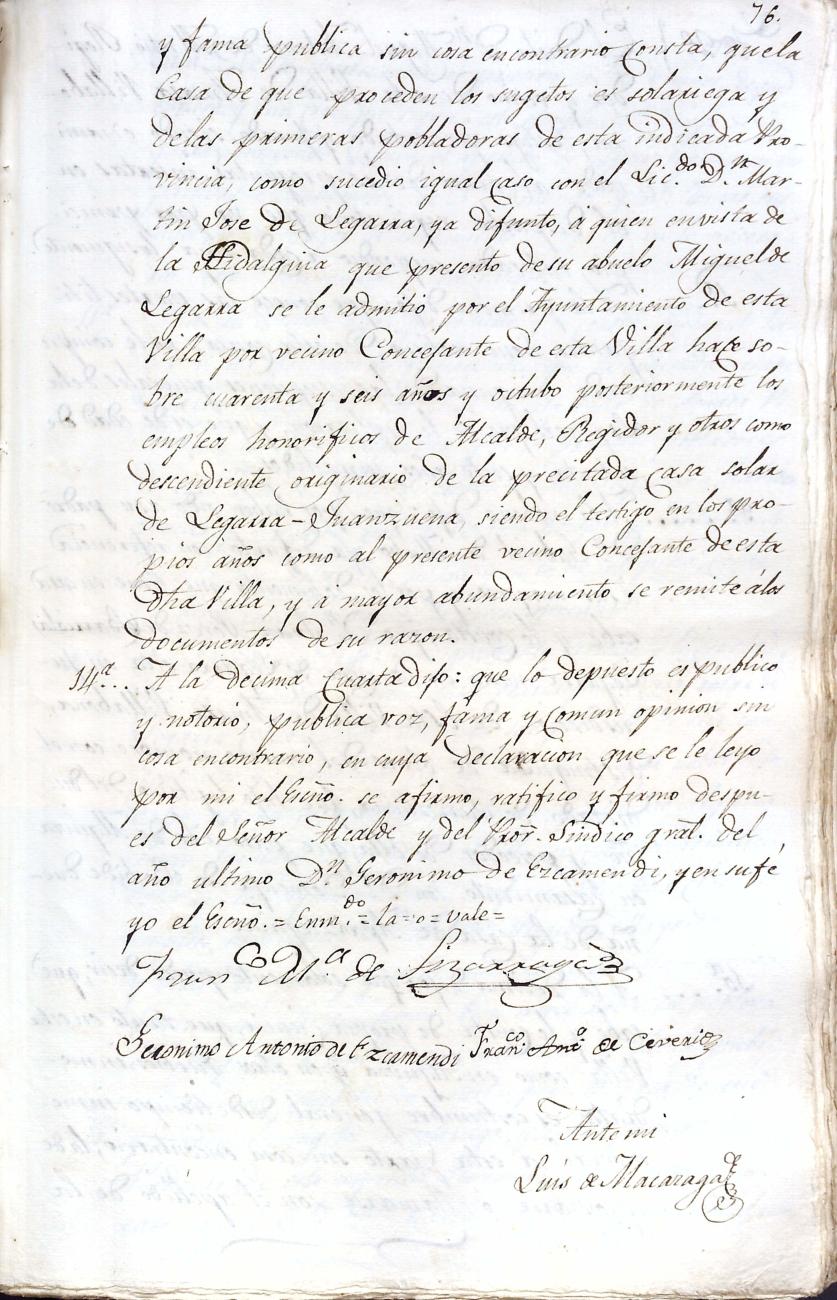 76.
y fama publica sin cosa encontrario Consta, quela
Casa de que proceden los sugetos es solariega y
delas primeras pobladoras de esta indicada Pro-
vincia, como sucedio igual caso con el Lic.do Dn. Mar-
tin Jose de Legarra, ya difunto, á quien envista de
la Hidalguia que presento desu abuelo Miguel de
Legarra se le admitio por el Ayuntamiento de esta
Villa por vecino Concejante de esta Villa hace so-
bre cuarenta y seis años y octubo posteriormente los
empleos honorificos de Alcalde, Regidor y otros como
descendiente originario de la precitada Casa solar
de Legarra-Juanzuena, siendo el testigo en los pro-
pios años como al presente vecino Concejante de esta
dha Villa, y á mayor abundamiento se remite álos
documentos de su razon.
14ª.. A la decima Cuarta dijo: que lo depuesto es publico
y notorio, publica voz, fama y Comun opinion sin
cosa encontrario, en cuya declaracion que se le leyo
por mi el Esčno. se afirmo, ratifico y firmo despu-
es del Señor Alcalde y del Pror. Sindico gral. del
año ultimo Dn Geronimo de Ezcamendi, y en su fé
yo el Esčno.= Enm.do= la=o=vale=
Franco Ma. de Lizarraga
Geronimo Antonio de Ezcamendi Franco Anto de Ceverio
Ante mi
Luis de Macazaga